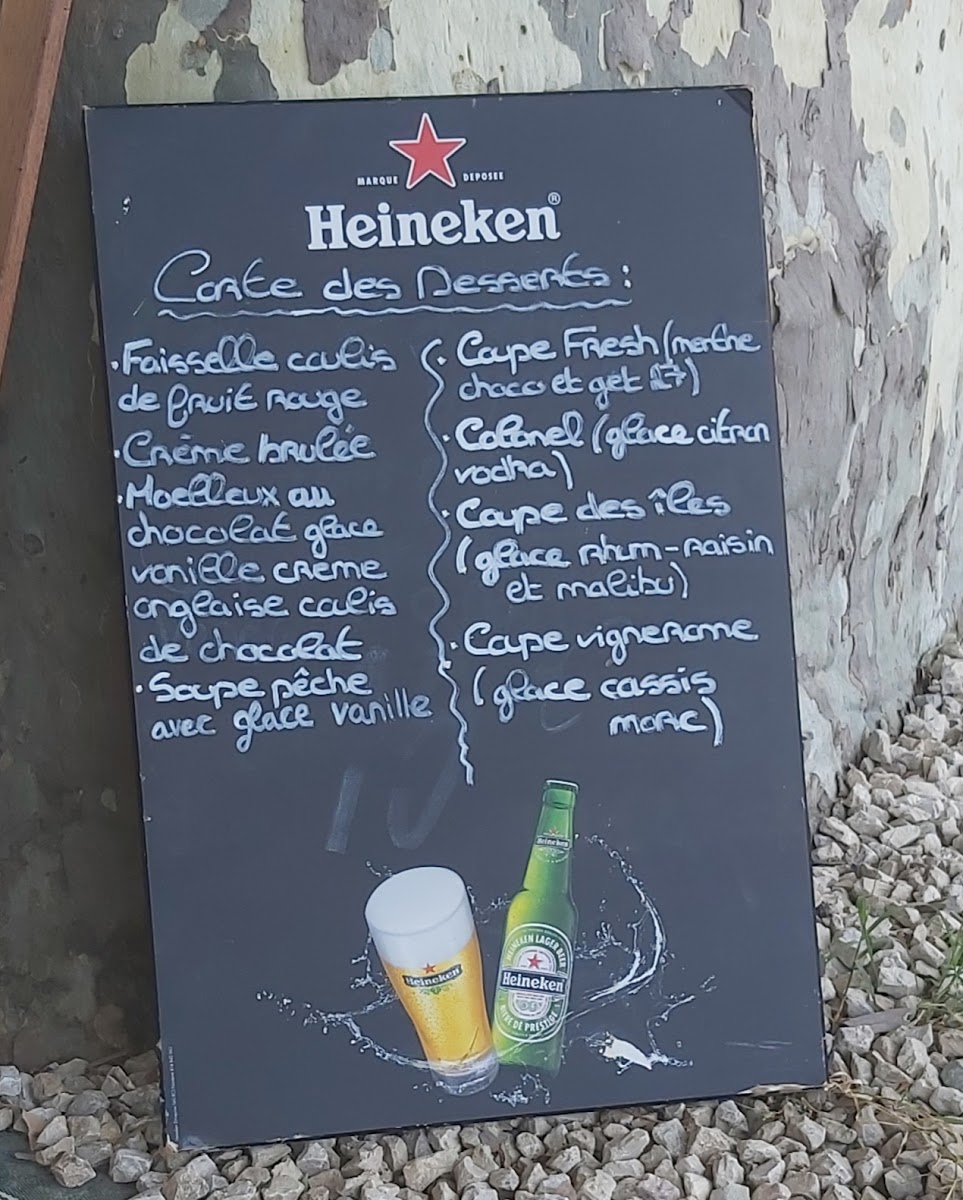 MARQUE DEPOSEE
Heineken®
Carte des Desserts :
· Faisselle coulis
de fruit rouge
· Crème brulée
· Moelleux au
chocolat glace
vanille crème
anglaise coulis
de chocolat
· Soupe pêche
avec glace vanille
· Coupe Fresh (menthe
choco et get 27)
· Colonel (glace citron
vodka)
· Coupe des îles
(glace rhum-raisin
et malibu)
· Coupe vignerone
(glace cassis
marc)
Heineken
Heineken
HEINEKEN LAGER BEER
Heineken
BIÈRE DE PRESTIGE